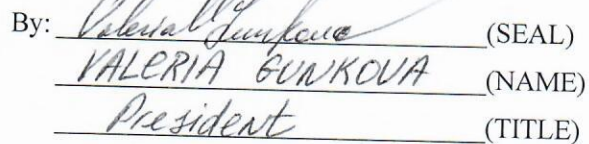 By: Valeria Gunkova (SEAL)
VALERIA GUNKOVA (NAME)
President (TITLE)